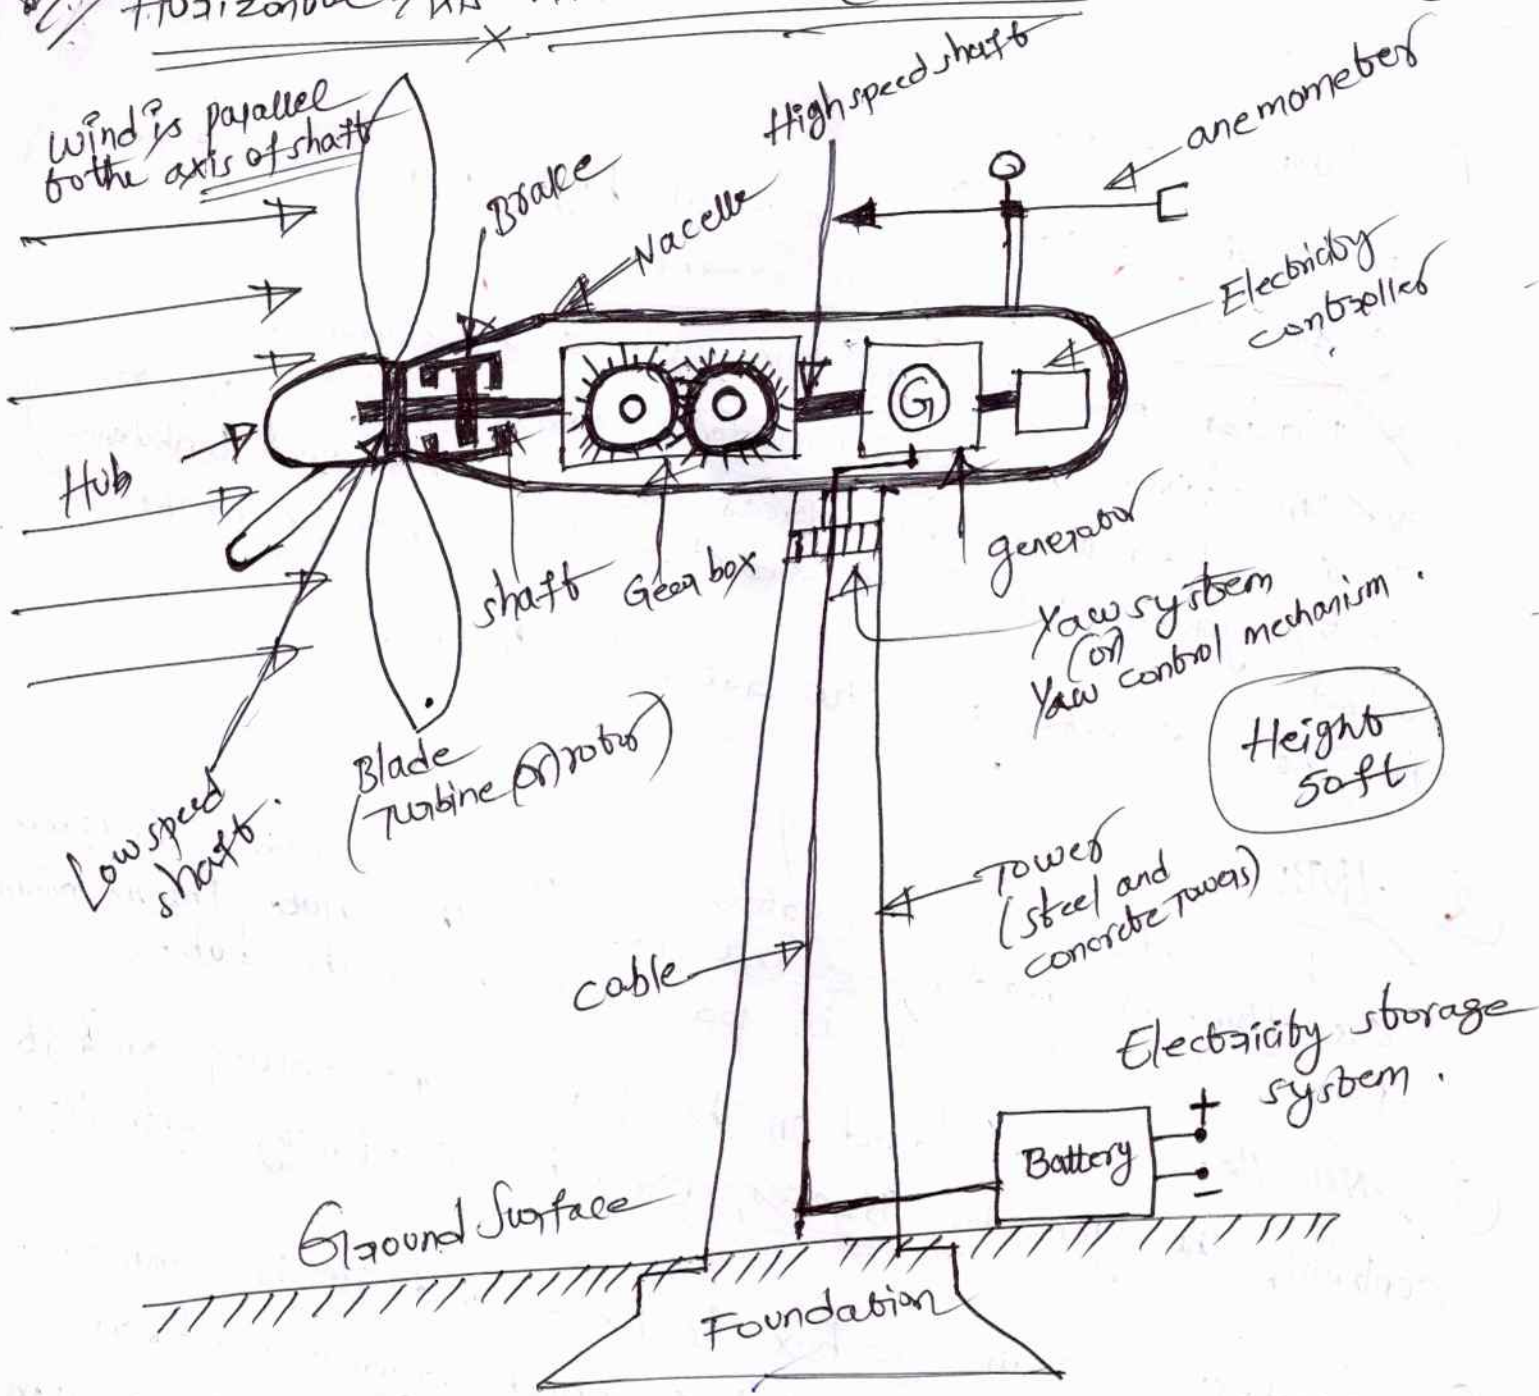 Horizontal
Wind is parallel
to the axis of shaft
High speed shaft
anemometer
Brake
Nacelle
Electricity
controller
Hub
G
shaft
Gear box
generator
Yaw system
(or)
Yaw control mechanism.
Height
50ft
Low speed
shaft.
Blade
(Turbine (or) rotor)
Tower
(steel and
concrete Towers)
cable
Electricity storage
system.
+
Battery
-
Ground Surface
Foundation